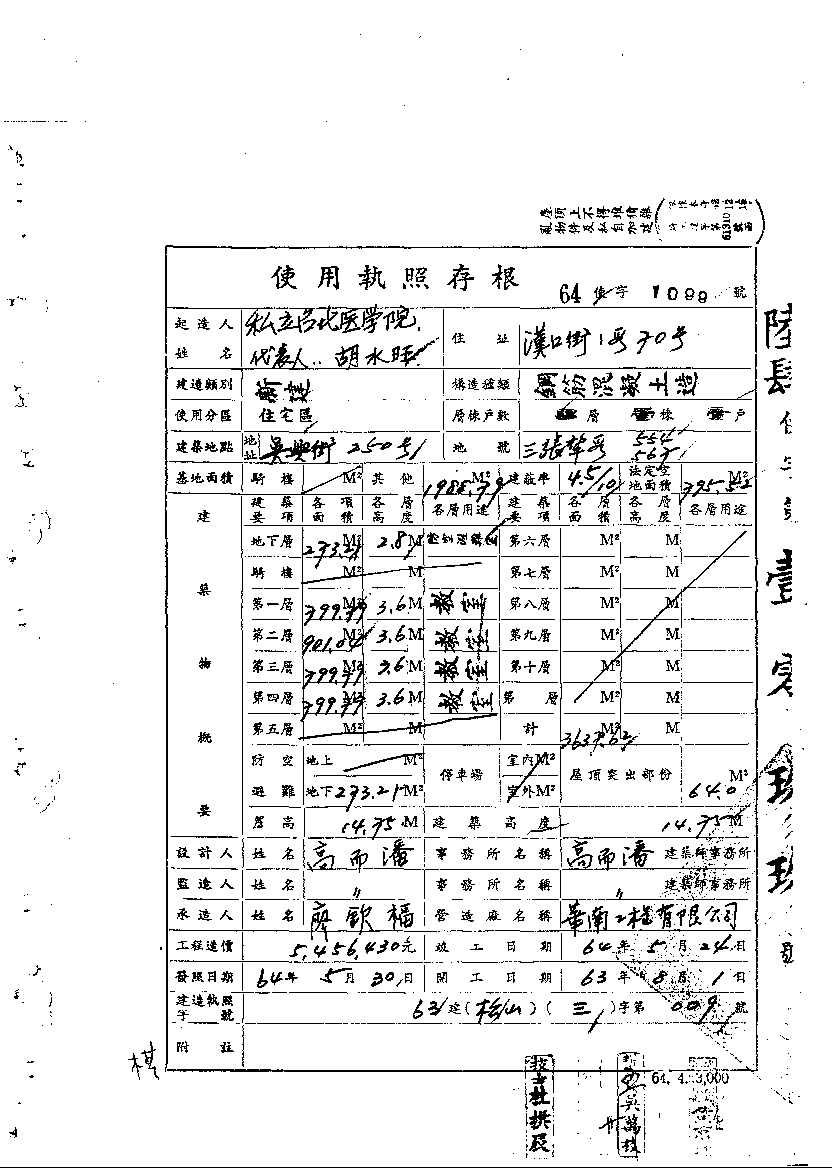 屋頂上不得堆積雜
亂物件及私自加建
使用執照存根
64 使字 1099 號
起造人姓名 私立台北医学院 代表人：胡水旺 住址 漢口街1段70号
建造類別 新建 構造種類 鋼筋混凝土造
使用分區 住宅區 層棟戶數 層 棟 戶
建築地點 地址 吳興街250号 地號 三張犂段 554 565
基地面積 騎樓 M² 其他 M² 建蔽率 4.5/10 法定空地面積 M²
建築物概要
建築要項 各項面積 各層高度 各層用途 建築要項 各層面積 各層高度 各層用途
地下層 273.21 M² 2.8 M 第六層 M² M
騎樓 M² M 第七層 M² M
第一層 799.79 M² 3.6 M 教室 第八層 M² M
第二層 901.04 M² 3.6 M 教室 第九層 M² M
第三層 799.79 M² 3.6 M 教室 第十層 M² M
第四層 799.79 M² 3.6 M 教室 第 層 M² M
第五層 M² M 計 3637.62 M²
防空避難 地上 M² 停車場 室內 M² 屋頂突出部份 64.0 M²
地下 273.21 M² 室外 M²
簷高 14.75 M 建築高度 14.75 M
設計人 姓名 高而潘 事務所名稱 高而潘 建築師事務所
監造人 姓名 〃 事務所名稱 〃 建築師事務所
承造人 姓名 廖欽福 營造廠名稱 華南工程有限公司
工程造價 5,456,430元 竣工日期 64年5月24日
發照日期 64年5月30日 開工日期 63年8月1日
建造執照字號 63建(松山)(三)字第 009 號
附註
64. 4. 3,000